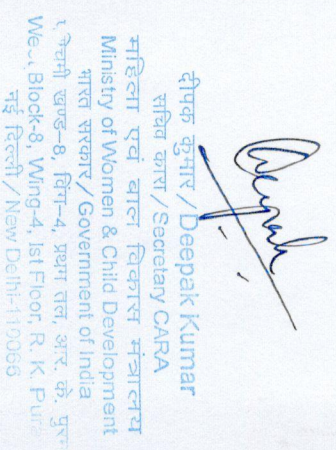 दीपक कुमार / Deepak Kumar
सचिव कारा / Secretary CARA
महिला एवं बाल विकास मंत्रालय
Ministry of Women & Child Development
भारत सरकार / Government of India
खण्ड-8, विंग-4, प्रथम तल, आर. के.
Block-8, Wing-4, Ist Floor, R. K. Pura
नई दिल्ली / New Delhi-110066